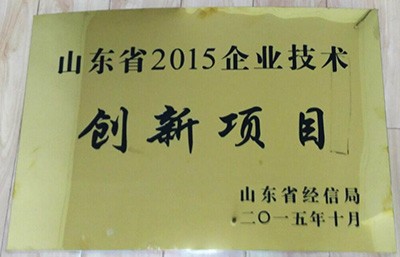 山东省2015企业技术
创新项目
山东省经信局
二〇一五年十月